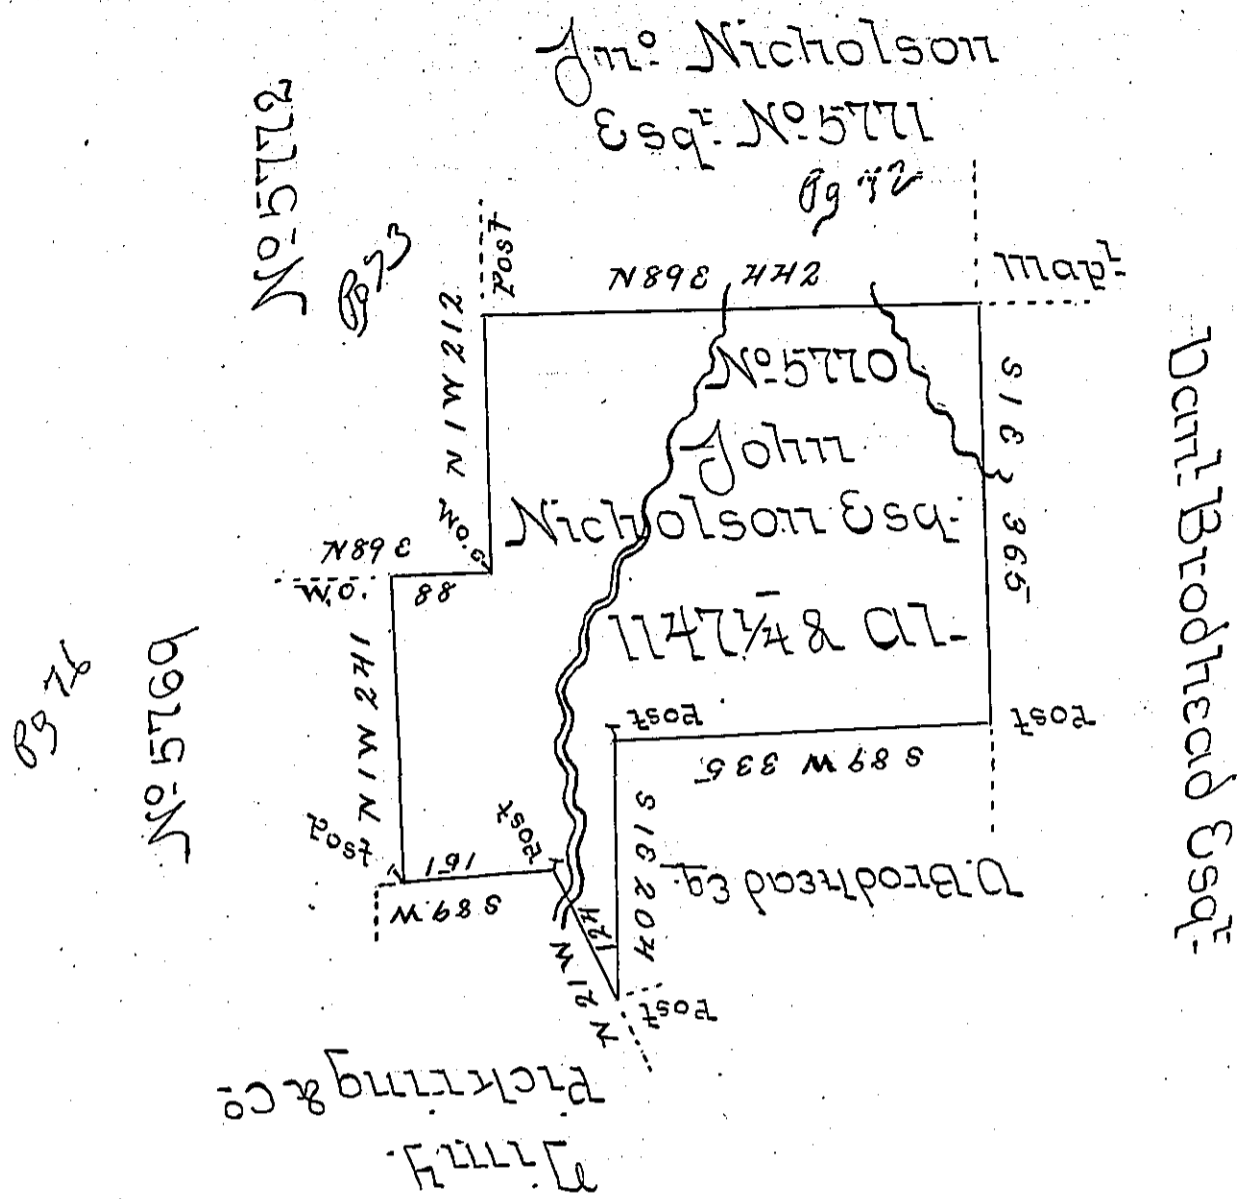 Jno: Nicholson
Esqr: No: 5771
Pg 72
No: 5772
Pg 73
Post
N 89 E 442
Mapl:
N 1 W 212
No: 5770
John
Nicholson Esq:
1147 1/4 & Al-
S 1 E 365
Danl: Brodhead Esqr:
W.O.
N 89 E
88
W.O.
N 1 W 241
Pg 76
No: 5769
Post
S 89 W 335
Post
Post
151
S 89 W
Post
S 1 E 204
D. Brodhead Eq:
124
N 21 W
Post
Timy.
Pickring & Co: